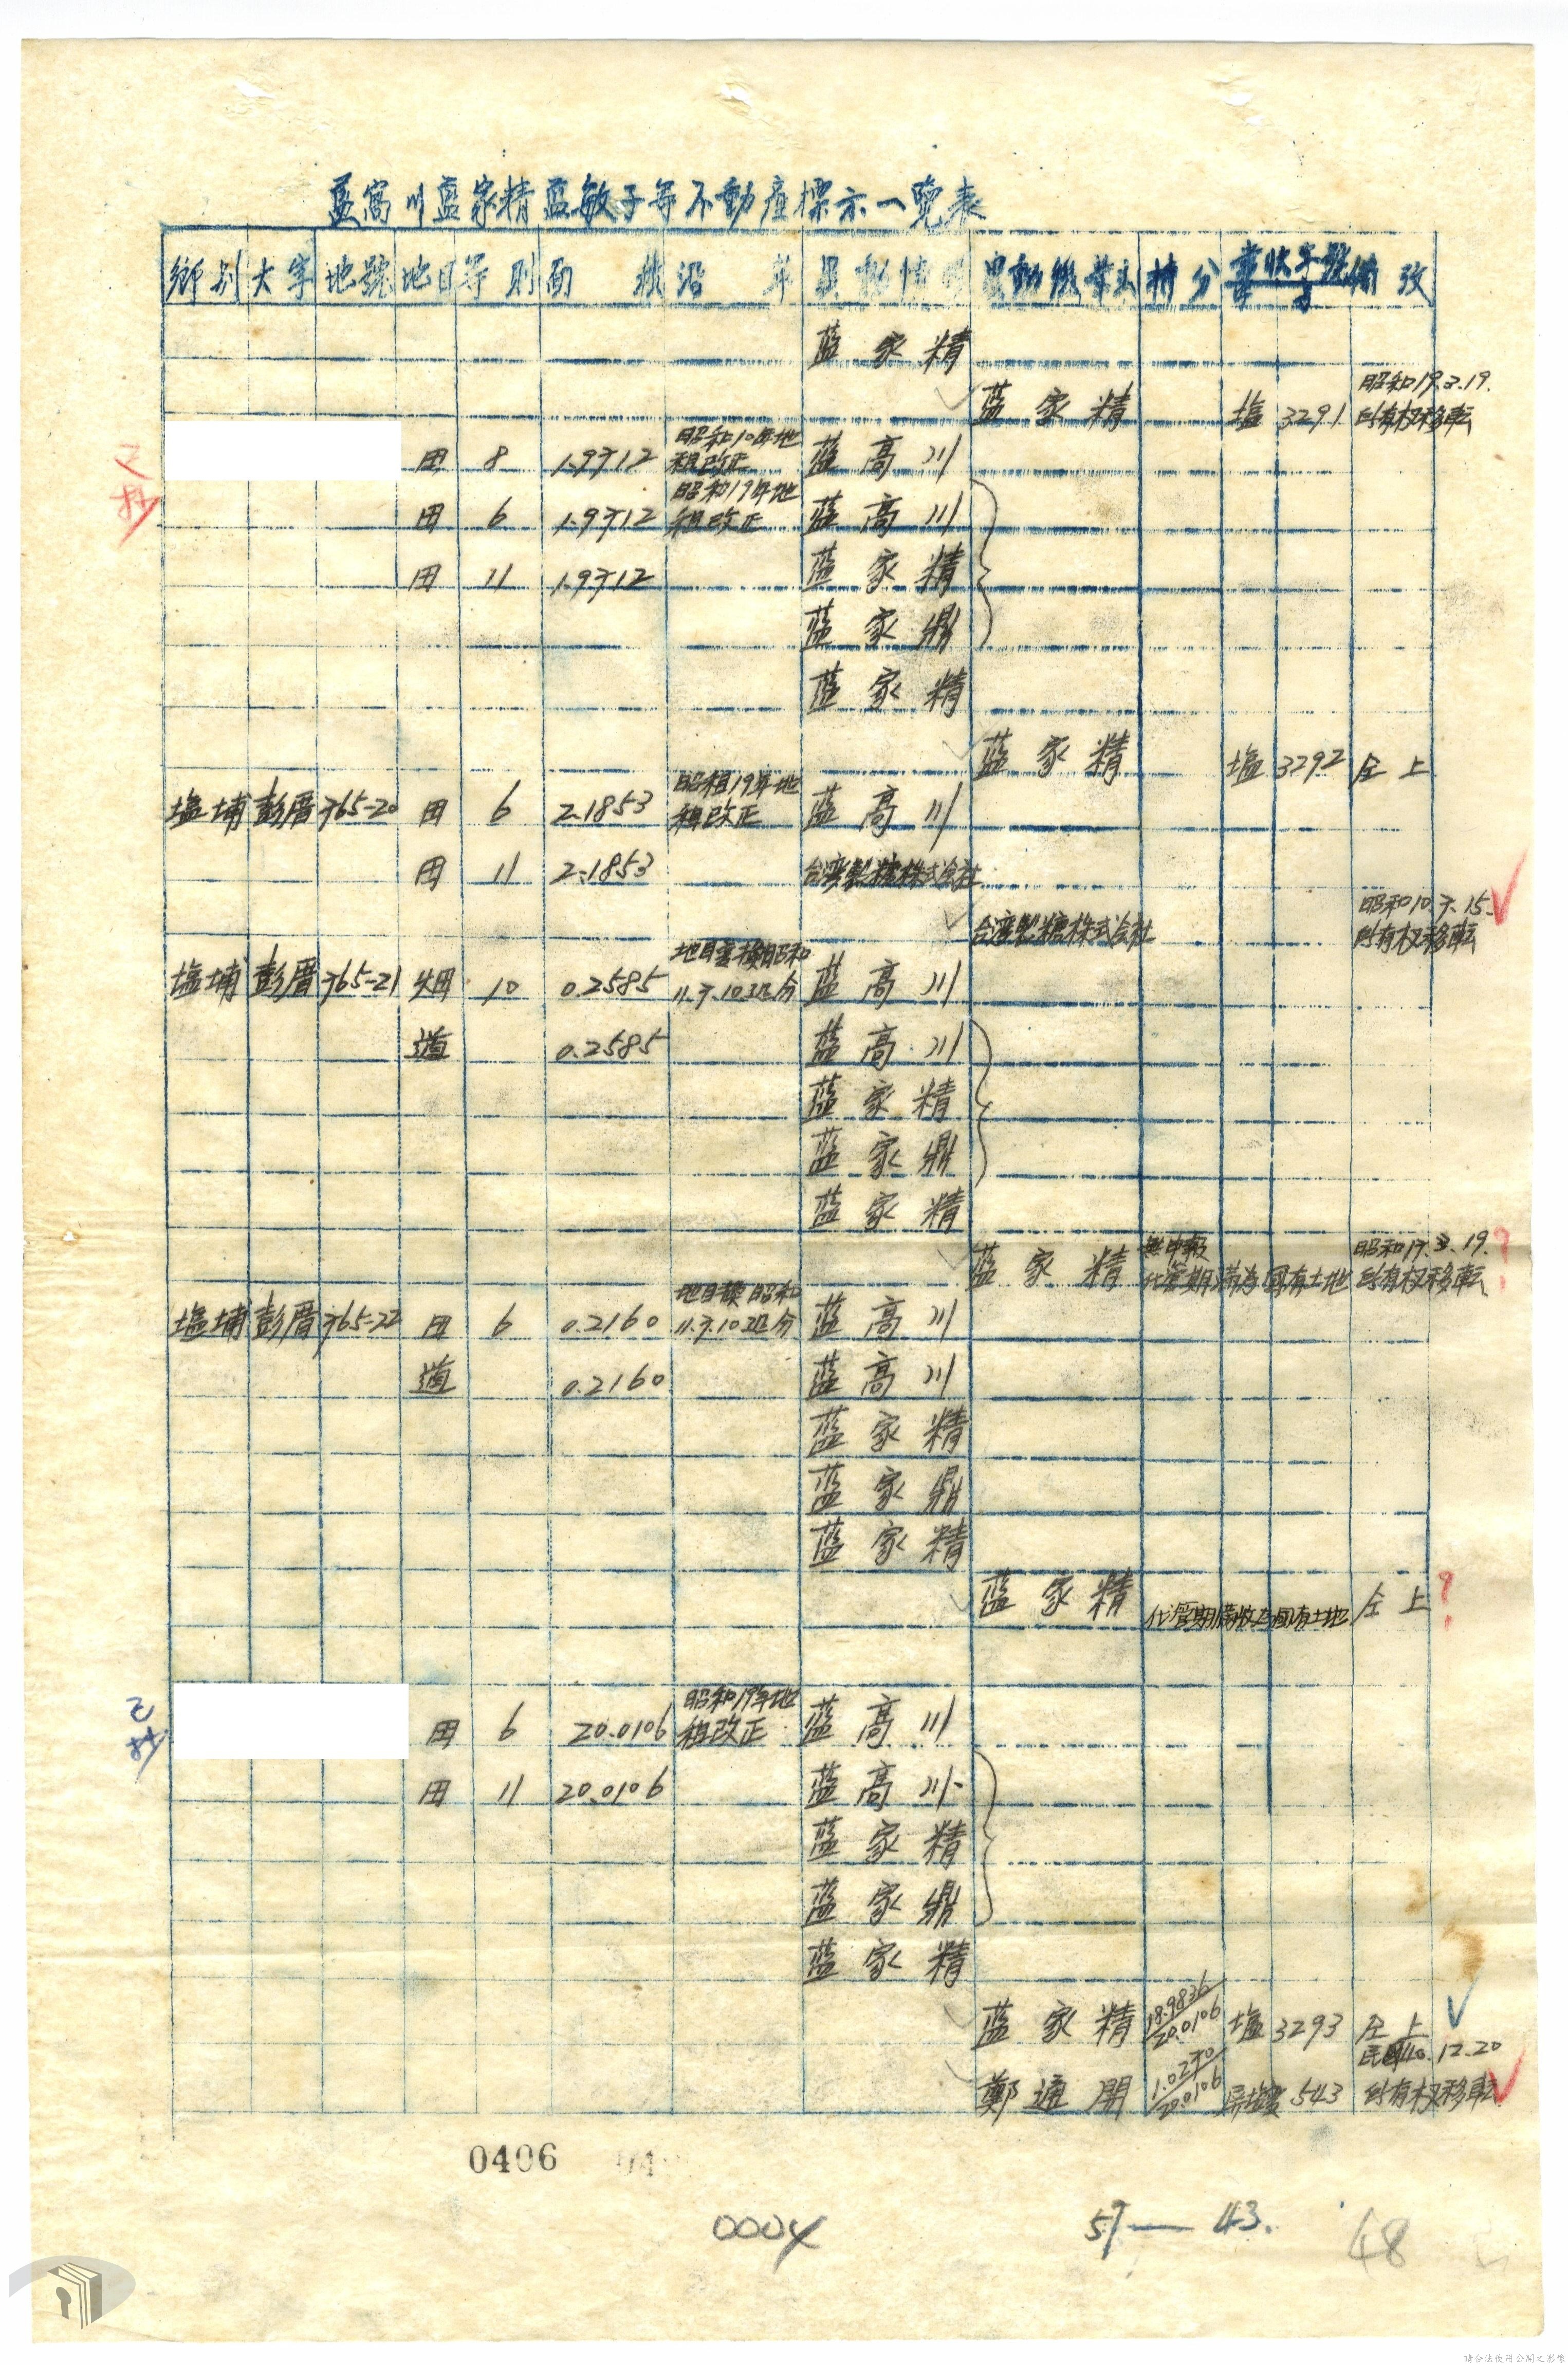 藍高川藍家精藍敏子等不動產標示一覽表
鄉別 大字 地號 地目 等則 面積 沿革 異動情形 異動後業主 持分 備攷
藍家精
昭和19.3.19.
藍家精 塩 3291 所有权移転
昭和10年地
田 8 租改正 藍高川
昭和19年地
田 6 租改正 藍高川
田 11 藍家精
藍家鼎
藍家精
藍家精 塩 3292 仝上
昭租19年地
塩埔 彭厝 765-20 田 6 2.1853 租改正 藍高川
田 11 2.1853 台湾製糖株式会社
昭和10.7.15.
台湾製糖株式会社 所有权移転
地目変換昭和
塩埔 彭厝 765-21 畑 10 0.2585 11.7.10処分 藍高川
道 0.2585 藍高川
藍家精
藍家鼎
藍家精
無申報 昭和19.3.19. ?
藍家精 代管期满為國有土地 所有权移転
地目変換昭和
塩埔 彭厝 765-22 田 6 0.2160 11.7.10処分 藍高川
道 0.2160 藍高川
藍家精
藍家鼎
藍家精
藍家精 代管期满收為國有土地 仝上 ?
已抄
昭和19年地
田 6 20.0106 租改正 藍高川
田 11 20.0106 藍高川
藍家精
藍家鼎
藍家精
藍家精 18.9836/20.0106 塩 3293 仝上
民國40.12.20
鄭通開 1.0270/20.0106 543 所有权移転
0406
0004
57—43.
48
請合法使用公開之影像